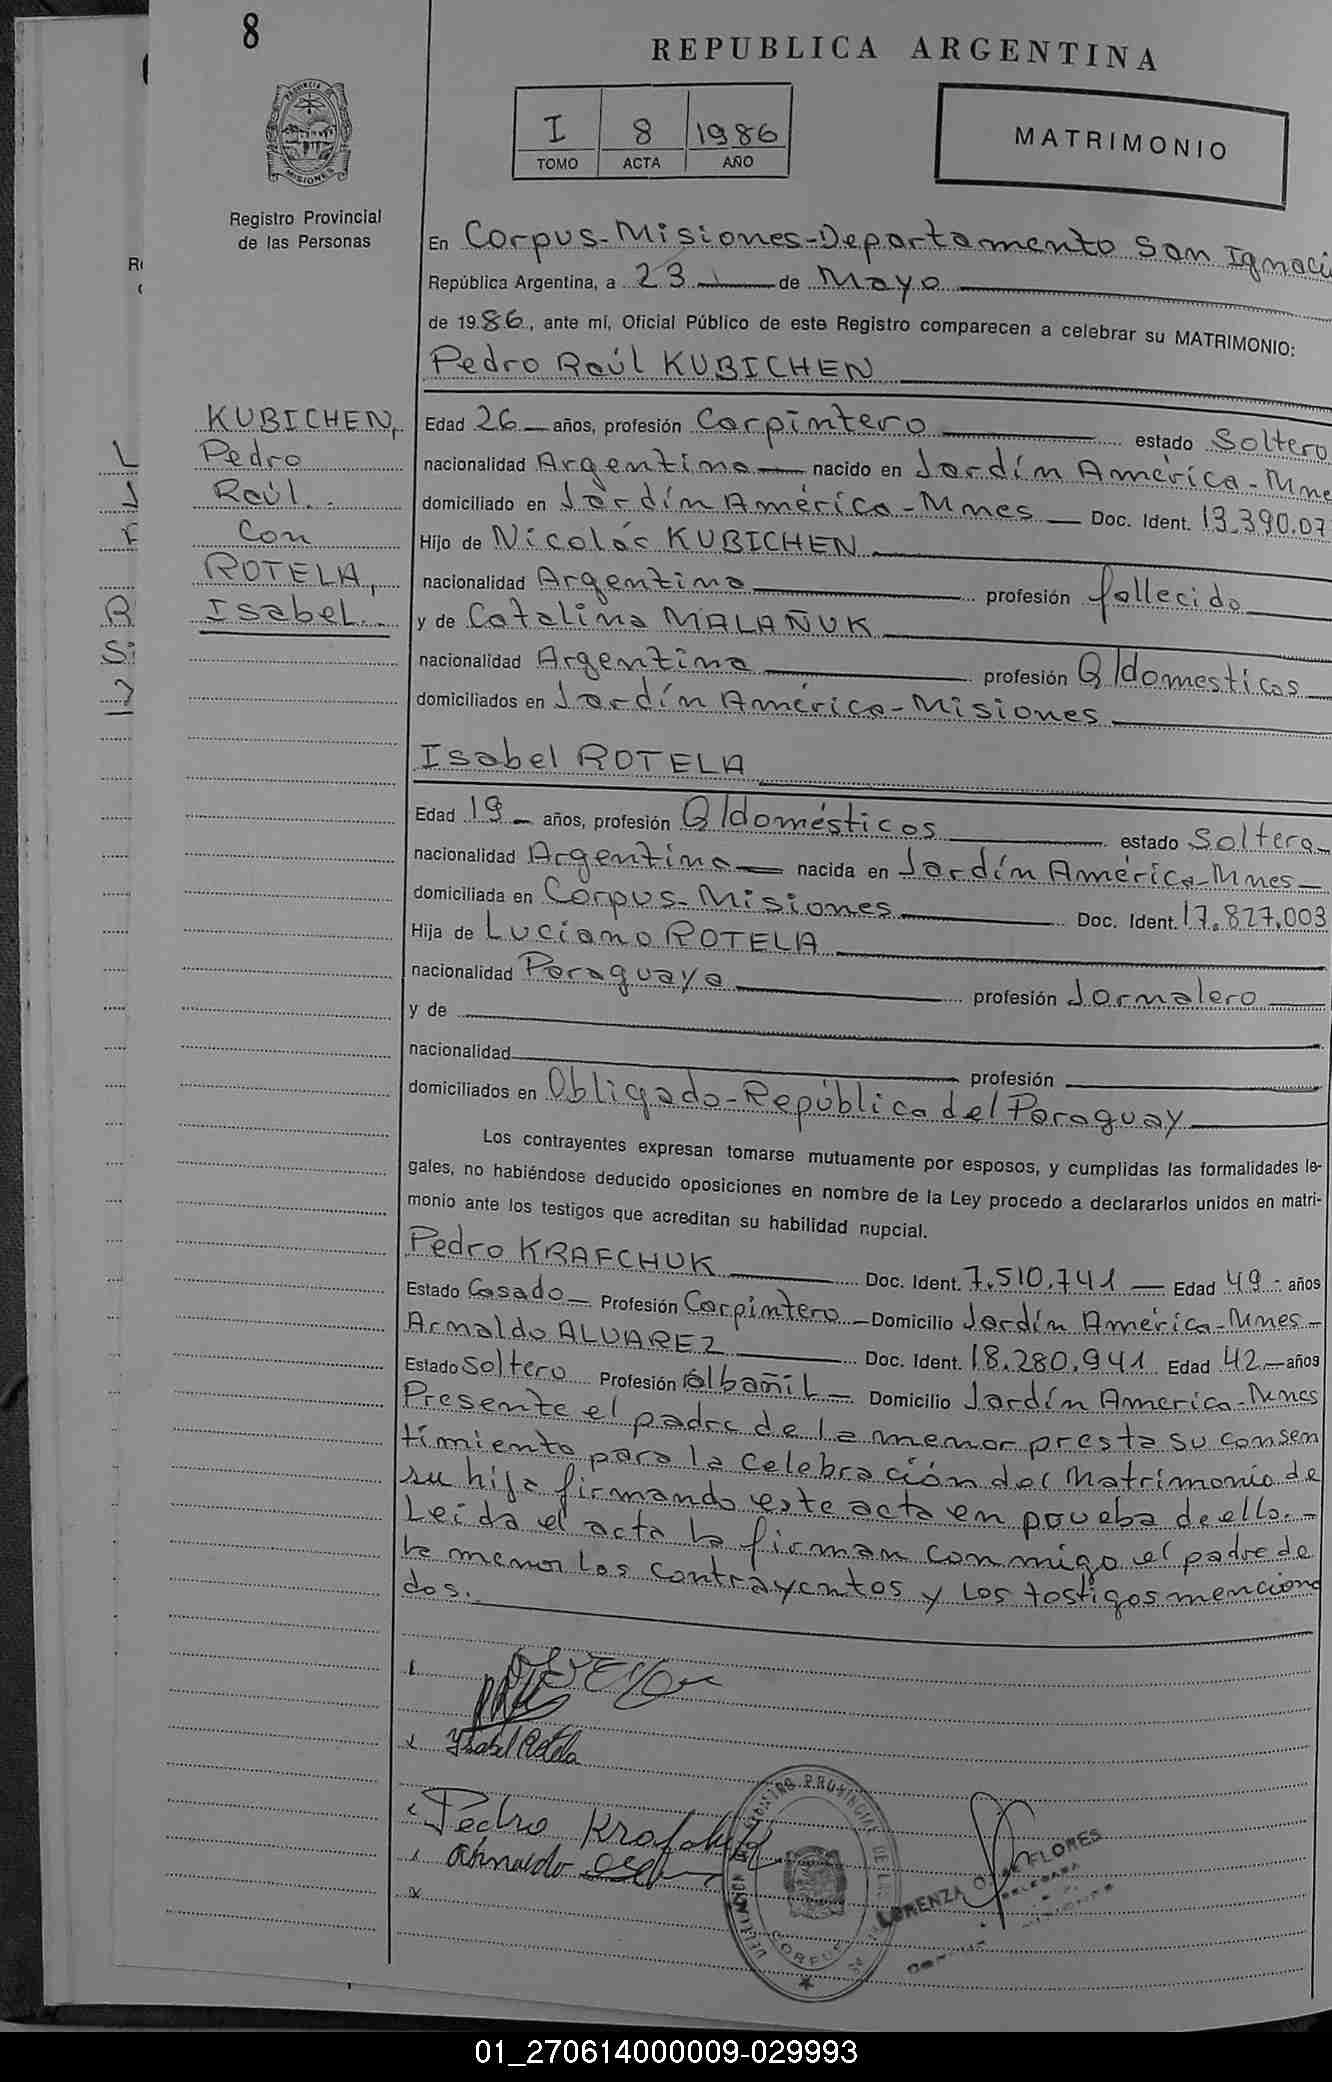 8
REPUBLICA ARGENTINA
PROVINCIA DE
MISIONES
I 8 1986
TOMO ACTA AÑO
MATRIMONIO
Registro Provincial
de las Personas
En Corpus-Misiones-Departamento San Ignaci
República Argentina, a 23 de Mayo
de 1986, ante mí, Oficial Público de este Registro comparecen a celebrar su MATRIMONIO:
Pedro Raúl KUBICHEN
KUBICHEN,
Pedro
Raúl..
Con
ROTELA,
Isabel..
Edad 26 años, profesión Carpintero estado Soltero
nacionalidad Argentina nacido en Jardín América-Mnes
domiciliado en Jardín América-Mnes Doc. Ident. 13.390.07
Hijo de Nicolás KUBICHEN
nacionalidad Argentina profesión fallecido
y de Catalina MALAÑUK
nacionalidad Argentina profesión Q/domesticos
domiciliados en Jardín América-Misiones
Isabel ROTELA
Edad 19 años, profesión Q/domésticos estado Soltera
nacionalidad Argentina nacida en Jardín América-Mnes
domiciliada en Corpus-Misiones Doc. Ident. 17.827.003
Hija de Luciano ROTELA
nacionalidad Paraguaya profesión Jornalero
y de
nacionalidad profesión
domiciliados en Obligado-República del Paraguay
Los contrayentes expresan tomarse mutuamente por esposos, y cumplidas las formalidades le-
gales, no habiéndose deducido oposiciones en nombre de la Ley procedo a declararlos unidos en matri-
monio ante los testigos que acreditan su habilidad nupcial.
Pedro KRAFCHUK Doc. Ident. 7.510.741 Edad 49 años
Estado Casado Profesión Carpintero Domicilio Jardín América-Mnes
Arnaldo ALVAREZ Doc. Ident. 18.280.941 Edad 42 años
Estado Soltero Profesión albañil Domicilio Jardín America-Mnes
Presente el padre de la menor presta su consen
timiento para la celebración del Matrimonio de
su hija firmando este acta en prueba de ello.-
Leida el acta la firman conmigo el padre de
la menor los contrayentes y los testigos menciona
dos.
Ysabel Rotela
Pedro Krafchuk
Arnaldo
REGISTRO PROVINCIAL DE LAS
DELEGACION
CORPUS
LORENZA O. DE FLORES
DELEGADA
01_270614000009-029993